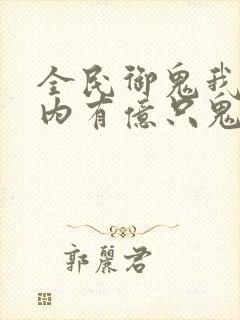 全民御鬼我
内有億只鬼
郭麗君